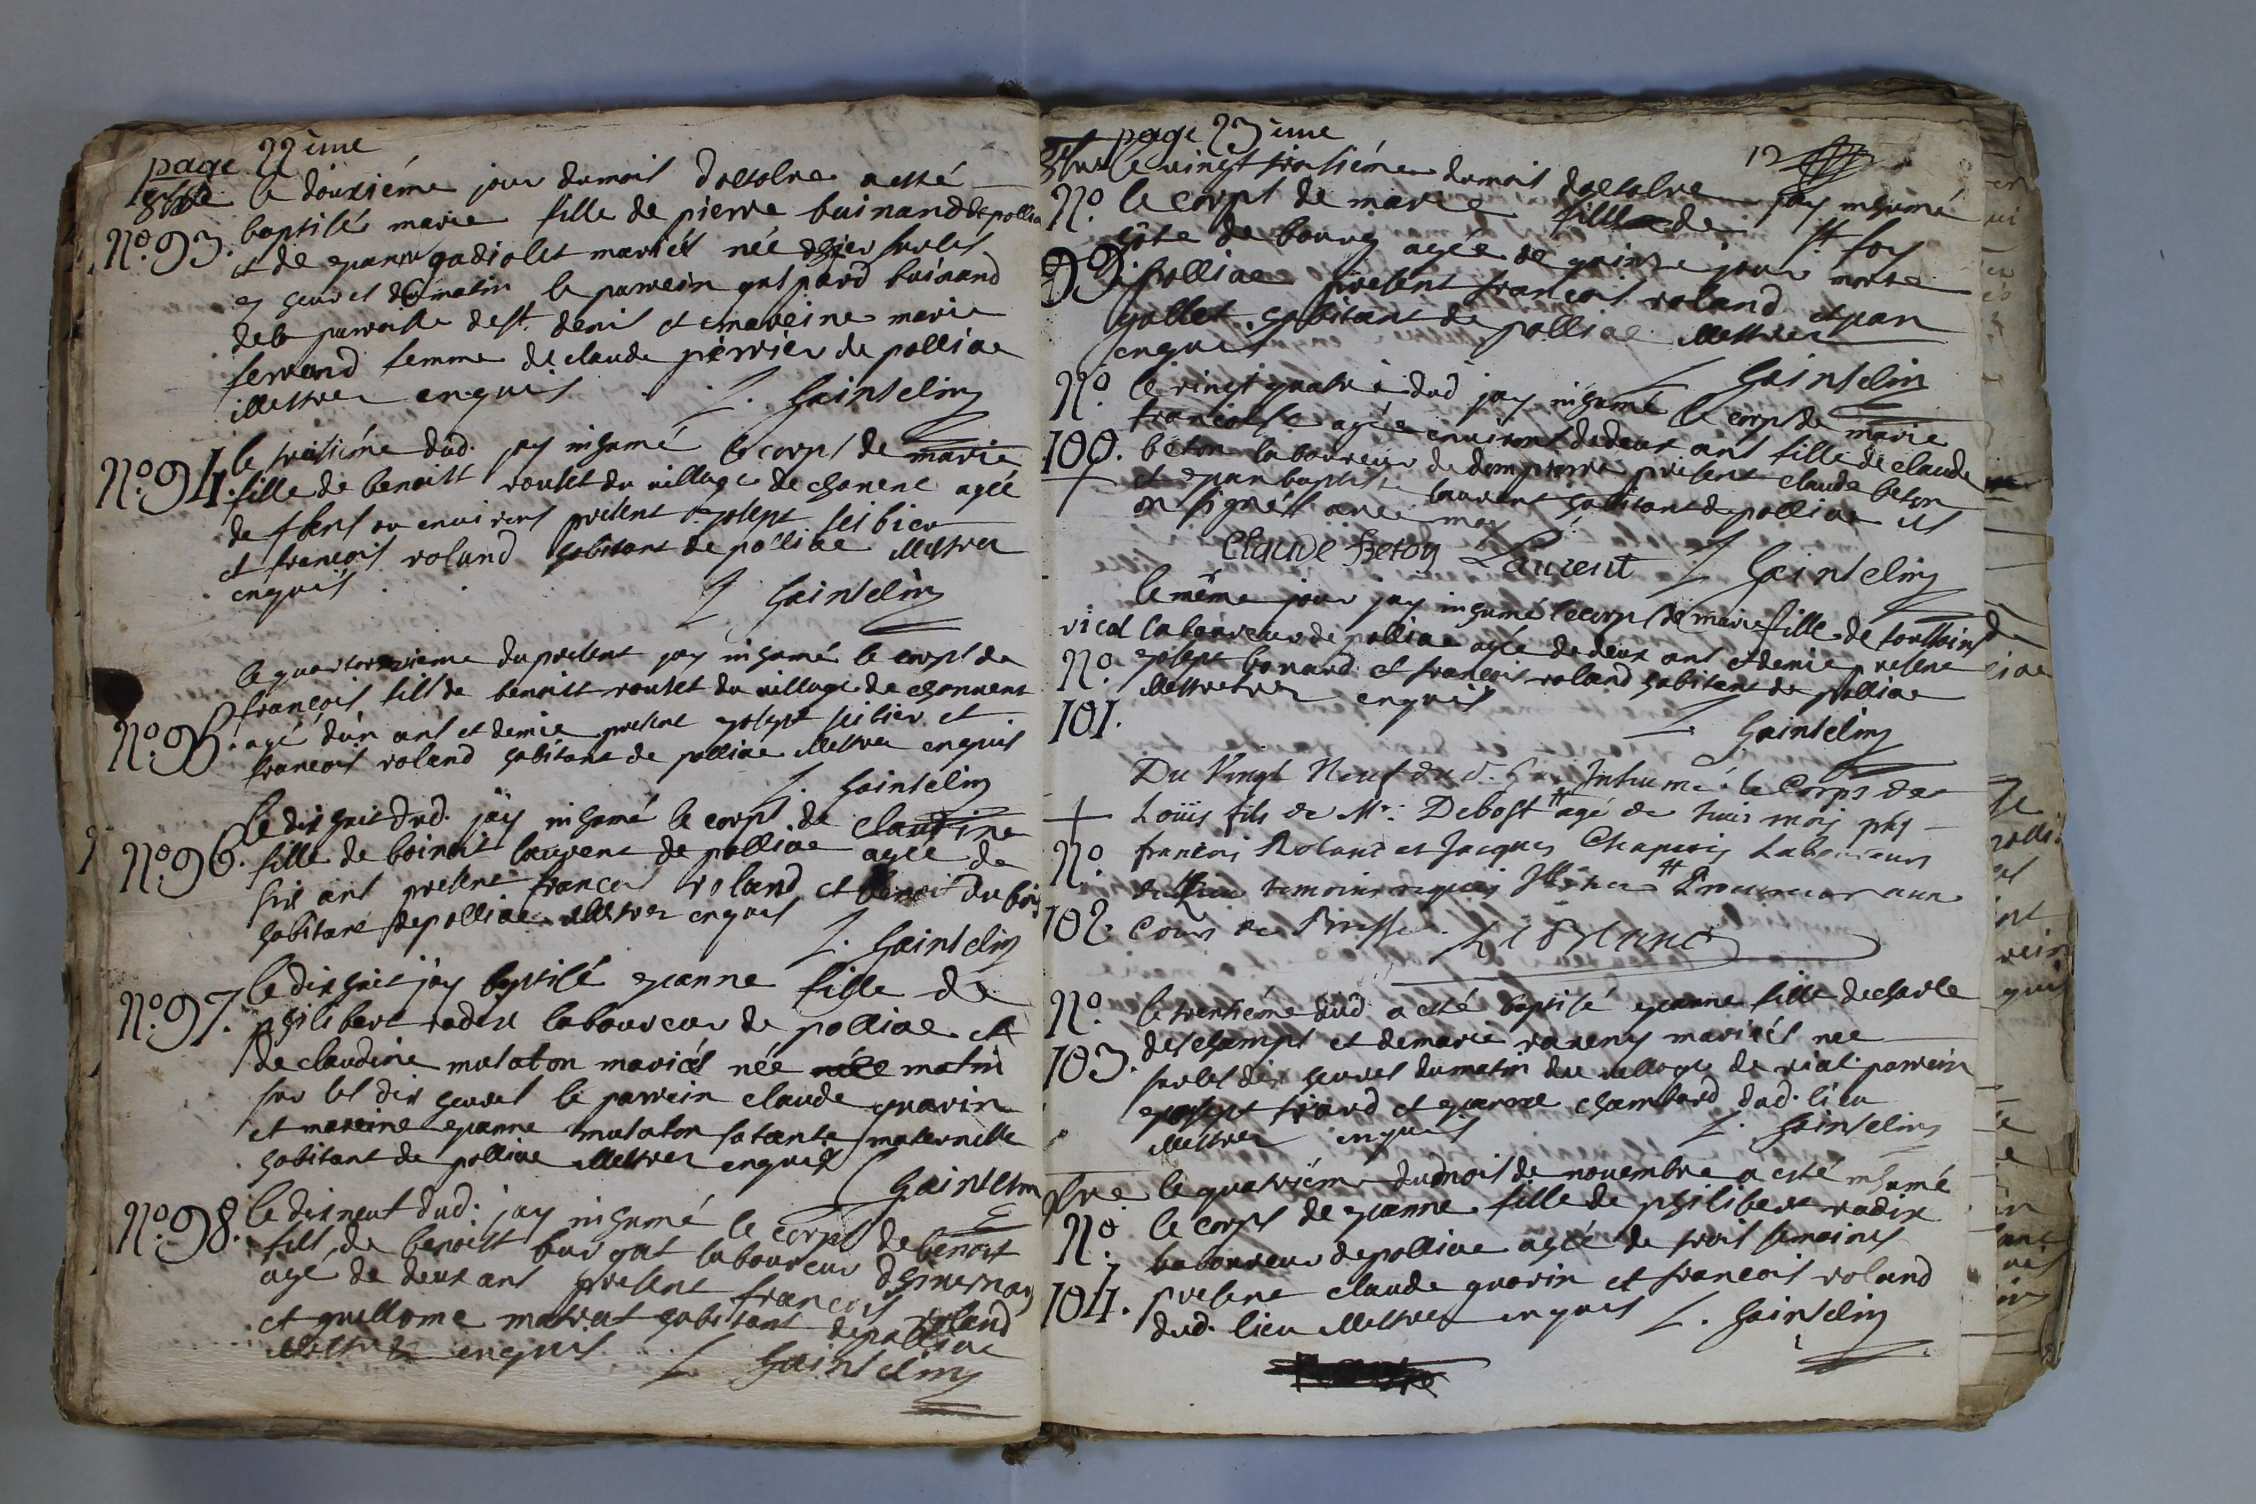 page 22 ième
8bre le douziéme jour du mois d'octobre a esté
No. 93. baptisé marie fille de pierre buinand de pollia
et de yanne gadiolet mariés née sur les
heures du matin le parrein gaspard buinand
de la parroisse de st. denis et mareine marie
ferrand femme de claude perrier de polliae
illettrez enquis L. Gointelin
No. 94. le treisiéme dud. jay inhumé le corps de marie
fille de benoist roulet du village de chanene agée
de ans ou environs present yoseph seibier
et francois roland habitans de polliae illettrez
enquis
L. Gointelin
le quatorzieme du present jay inhumé le corps de
francois fils de benoist roulet du village de channene
No. 95. agé d'un ans et demie present yoseph seibier et
francois roland habitans de polliae illettrez enquis
L. Gointelin
le dix huit dud. jay inhumé le corps de claudine
No. 96. fille de boinoit laurent de polliae agée de
six ans present francois roland et benoit du bois
habitans de polliae illettrez enquis
L. Gointelin
No. 97. le dix huit jay baptisé yeanne fille de
philibert radix laboureur de polliae et
de claudine mulaton mariés née matin
sur les dix heures le parrein claude guarin
et mareine yeanne mulaton sa tante maternelle
habitans de polliae illettrez enquis
Gointelin
No. 98. le dix neuf dud. jay inhumé le corps de benoist
fils de benoist burgat laboureur
agé de deux ans present francois roland
et guellome matrat habitans de polliae
illettrez enquis
L. Gointelin
page 23 ième
12
8bre le vingt troisiéme du mois d'octobre jay inhumé
No. le corps de marie fille de st. foy
99. de bourg agée de quinze jour morte
à polliae present francois roland et jean
gollet habitans de polliae illettrez
enquis
L. Gointelin
No. le vingt quatre dud jay inhumé le corps de marie
francoise agée environs de deux ans fille de claude
100. beton laboureur de dompierre present claude beton
et yean baptiste laurent habitans de polliae ils
on signés avec moy
Claude Beton Laurent L Gointelin
le même jour jay inhumé le corps de marie fille de toussoins
vicat laboureur de polliae agée de deux ans et demie presens
No. yoseph bonard et francois roland habitans de polliae
illettrez enquis
101.
L. Gointelin
Du Vingt Neuf du d. Inhumé le Corps de
Loüis fils de Mr: Debost # agé de trois mois pnt
No. francois Roland et Jacques Chapuis Laboureurs
du lieu temoins requis Illetrez # Procureur aux
102. Cours de Bresse. LeBlanc
No. le trentiéme dud a esté baptisé yeanne fille de charle
103. deschamps et de marie raveny mariés née
sur les dix heures du matin du village de riat parrein
yoseph friard et yeanne chambard dud. lieu
illettrez enquis L. Gointelin
9bre le quatriéme du mois de novembre a esté inhumé
No. le corps de yeanne fille de philibert radix
laboureur de polliae agée de trois semaines
104. present claude guarin et francois roland
dud. lieu illettrez enquis L. Gointelin